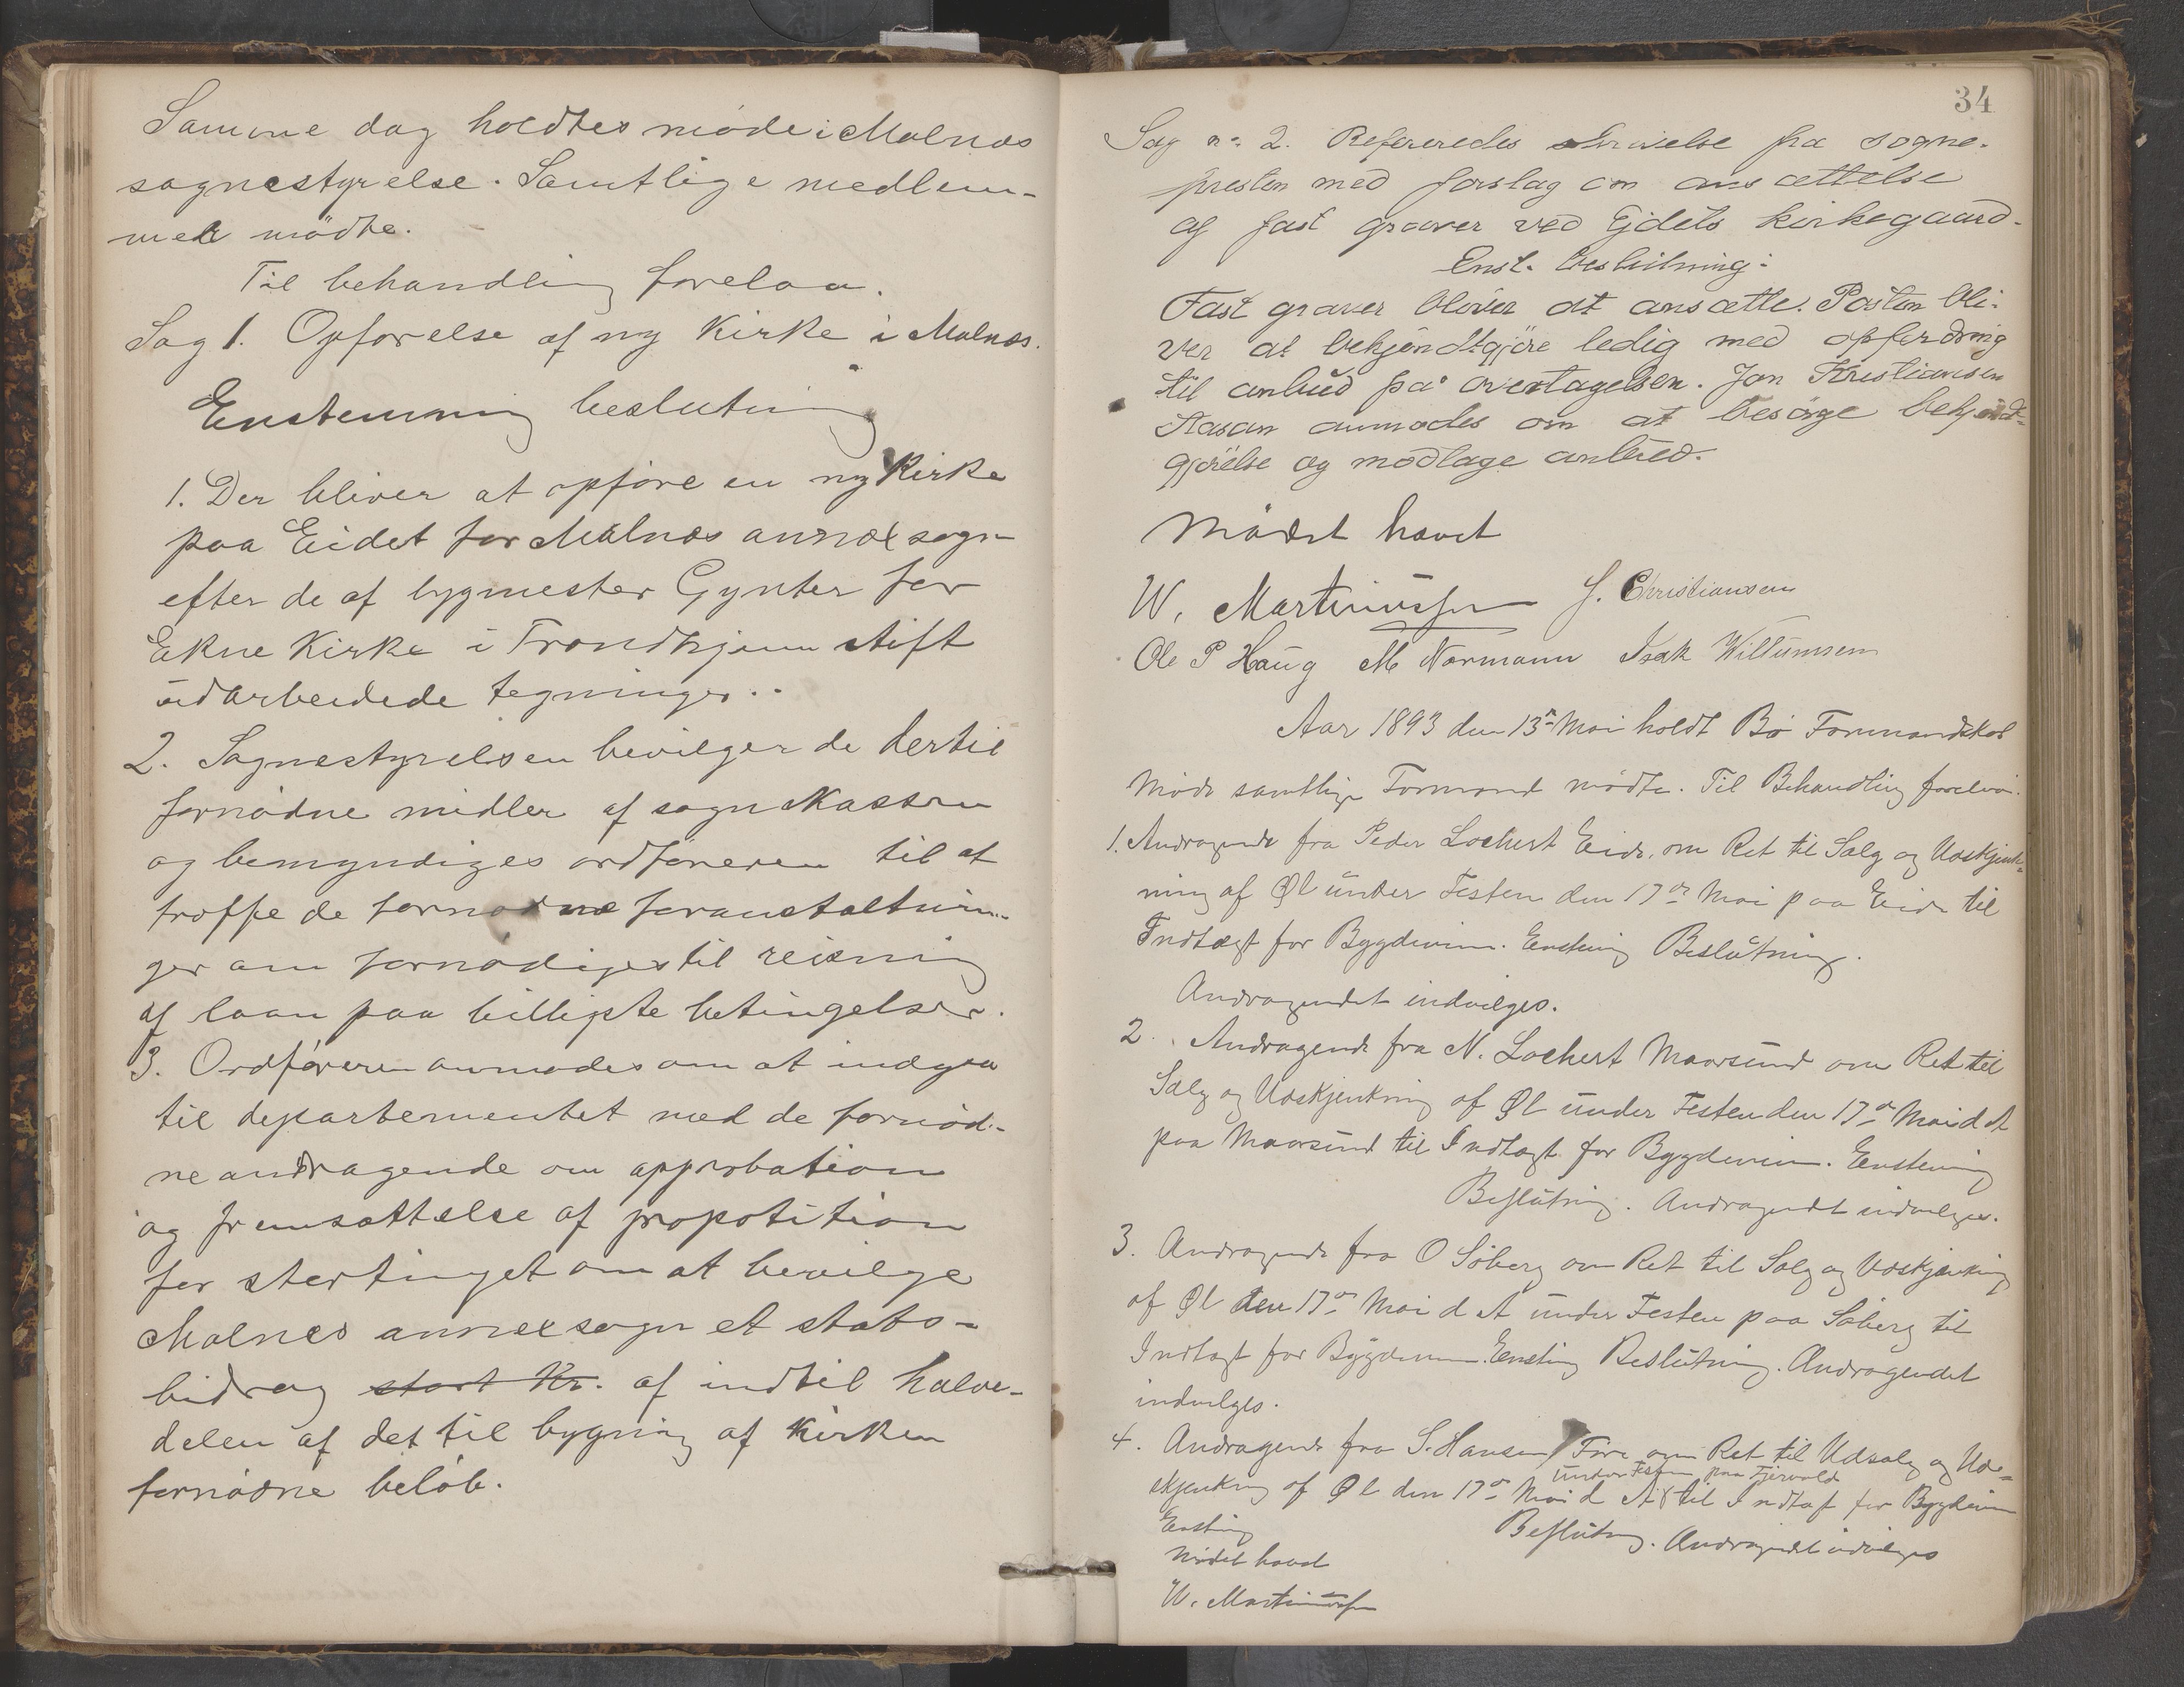 Samme dag holdtes møde i Malnæs
sognestyrelse. Samtlige medlem-
mer mødte.
Til behandling forelaa.
Sag 1. Opførelse af ny Kirke i Malnæs.
Enstemmig beslutning
1. Der bliver at opføre en ny Kirke
paa Eidet for Malnæs annexsogn
efter de af bygmester Gynter for
Ekne Kirke i Trondhjem stift
udarbeidede tegninger..
2. Sognestyrelsen bevilger de dertil
fornødne midler af sognekassen
og bemyndiges ordføreren til at
troffe de fornødne foranstaltnin-
ger om fornødiges til reisning
af laan paa billigste betingelser.
3. Ordføreren anmodes om at indgaa
til departementet med de fornød-
ne andragende om approbation
og fremsættelse af propotition
for stortinget om at bevilge
Malnes annexsogn et stats-
bidrag stort Kr. af indtil halve-
delen af det til bygning af kirken
fornødne beløb.
34
Sag no 2. Refereredes skrivelse fra sogne-
presten med forslag om ansættelse
af fast graver ved Ejdets kirkegaard.
Enst. beslutning:
Fast graver bliver at ansætte. Posten bli-
ver at bekjendtgjöre ledig med opfordring
til anbud på overtagelsen. Jan Kristiansen
anmodes om at besörge bekjendt-
gjörelse og modtage anbud.
Mödet hævet
W. Martinussen J. Christiansen
Ole P Haug M Normann Isak Willumsen
Aar 1893 den 13de Mai holdt Bø Formandskab
Møde samtlige Formænd mødte. Til Behandling forelaa.
1. Andragende fra Peder Lockert Eide, om Ret til Salg og Udskjænk-
ning af Øl under Festen den 17de Mai paa Eide til
Indtægt for Bygdeveien. Enstemig Beslutning.
Andragendet indvilges.
2. Andragende fra N. Lockert Maarsund om Ret til
Salg og Udskjenkning af Øl under Festen den 17de Mai d A
paa Maarsund til Indtægt for Bygdeveien. Enstemig
Beslutning. Andragendet indvilges.
3. Andragende fra O Söberg om Ret til Salg og Udskjænkning
af Øl den 17de Mai d A under Festen paa Søberg til
Indtægt for Bygdeveien. Enstemig Beslutning. Andragendet
indvilges.
4. Andragende fra S. Hansen Före om Ret til Udsalg og Ud-
under Festen paa Fjærvold
skjenkning af Øl den 17de Mai d A til Indtægt for Bygdeveien
Enstemig Beslutning. Andragendet indvilges
Mødet hævet
W. Martinussen